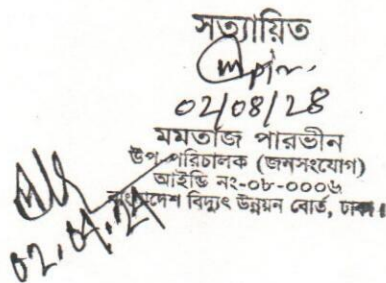 সত্যায়িত
০২/০৪/২৪
মমতাজ পারভীন
উপ-পরিচালক (জনসংযোগ)
আইডি নং-০৮-০০০৬
বাংলাদেশ বিদ্যুৎ উন্নয়ন বোর্ড, ঢাকা।
০২.০৪.২৪